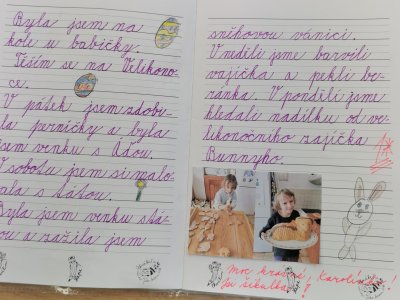 Byla jsem na
kole u babičky.
Těším se na Velikono-
ce.
V pátek jsem zdobi-
la perníčky a byla
jsem venku s Áďou.
V sobotu jsem si malo-
vala s tátou.
Byla jsem venku s tá-
tou a zažila jsem
sněhovou vánici.
V neděli jsme barvili
vajíčka a pekli be-
ránka. V pondělí jsme
hledali nadílku od ve-
likonočního zajíčka
Bunnyho.
1*
Moc krásné, Karolínko!
Jsi šikulka!